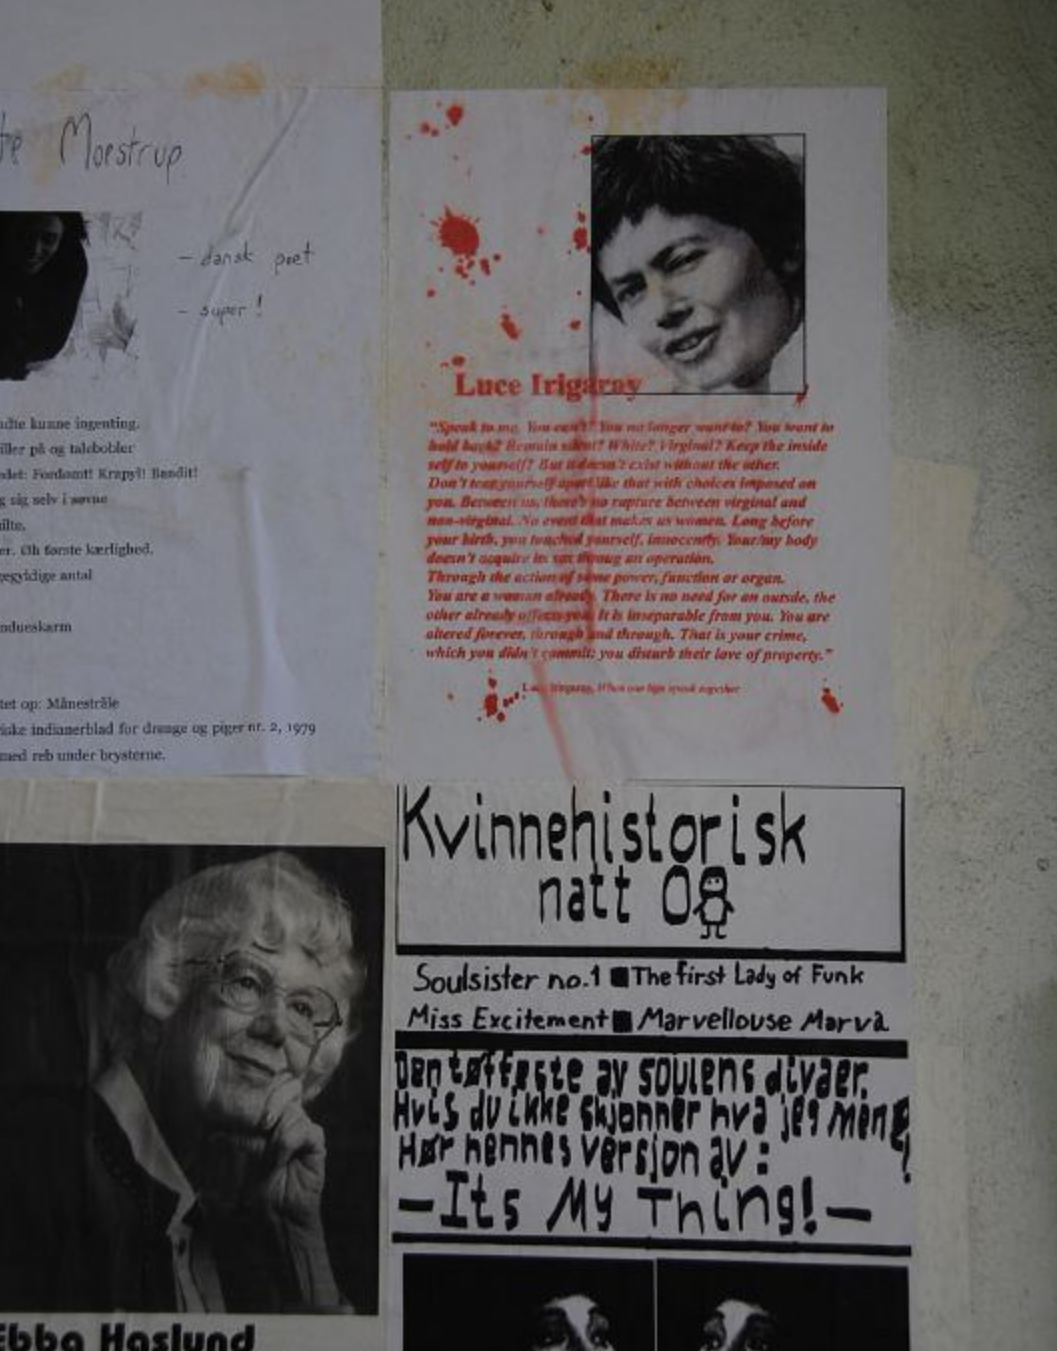 te Moestrup
- dansk poet
- super!
ndte kunne ingenting.
iller på og talebobler
det: Fordømt! Krapyl! Bandit!
g sig selv i søvne
ilte.
er. Øh første kærlighed.
egyldige antal
ndueskarm
tet op: Månestråle
iske indianerblad for drenge og piger nr. 2, 1979
med reb under brysterne.
Luce Irigaray
"Speak to me. You can't? You no longer want to? You want to
hold back? Remain silent? White? Virginal? Keep the inside
self to yourself? But it doesn't exist without the other.
Don't tear yourself apart like that with choices imposed on
you. Between us, there's no rupture between virginal and
non-virginal. No event that makes us women. Long before
your birth, you touched yourself, innocently. Your/my body
doesn't acquire its sex throug an operation.
Through the action of some power, function or organ.
You are a woman already. There is no need for an outsde, the
other already affects you. It is inseparable from you. You are
altered forever, through and through. That is your crime,
which you didn't commit: you disturb their love of property."
Luce Irigaray, When our lips speak together
Ebba Haslund
Kvinnehistorisk
natt 08
Soulsister no.1 ■ The first Lady of Funk
Miss Excitement ■ Marvellouse Marva
Den tøffeste av soulens divaer.
Hvis du ikke skjønner hva jeg mener,
Hør hennes versjon av:
—Its My Thing!—